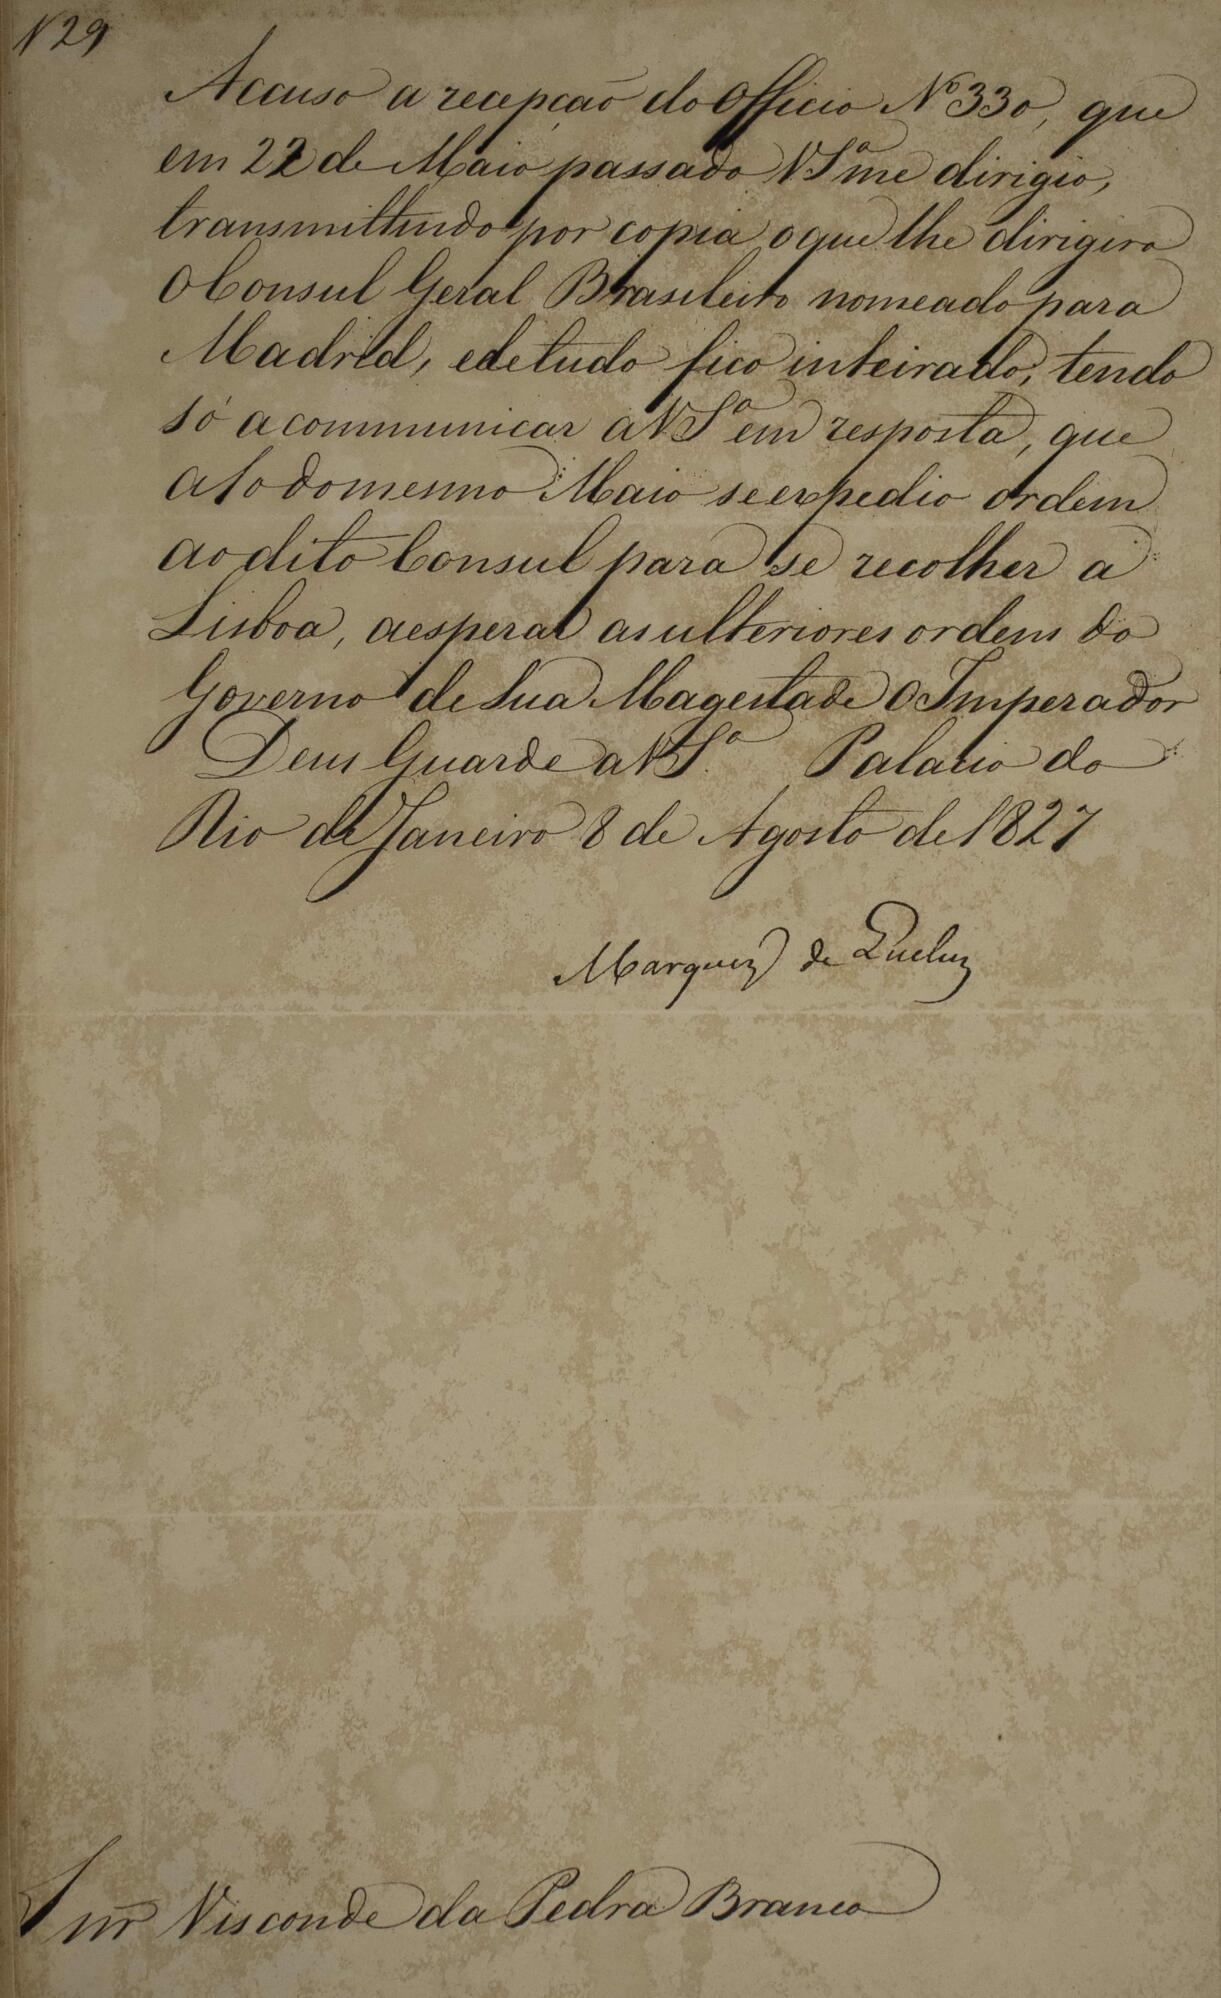 N 29
Accuso a recepção do Officio Nº 330, que
em 22 de Maio passado V Sª me dirigio,
transmittindo por copia o que lhe dirigira
o Consul Geral Brasileiro nomeado para
Madrid, e de tudo fico inteirado, tendo
só a communicar a V Sª em resposta, que
a 10 do mesmo Maio se expedio ordem
ao dito Consul para se recolher a
Lisboa, a esperar as ulteriores ordens do
Governo de Sua Magestade O Imperador
Deus Guarde a V Sª. Palacio do
Rio de Janeiro 8 de Agosto de 1827
Marquez de Queluz
Snr Visconde da Pedra Branca